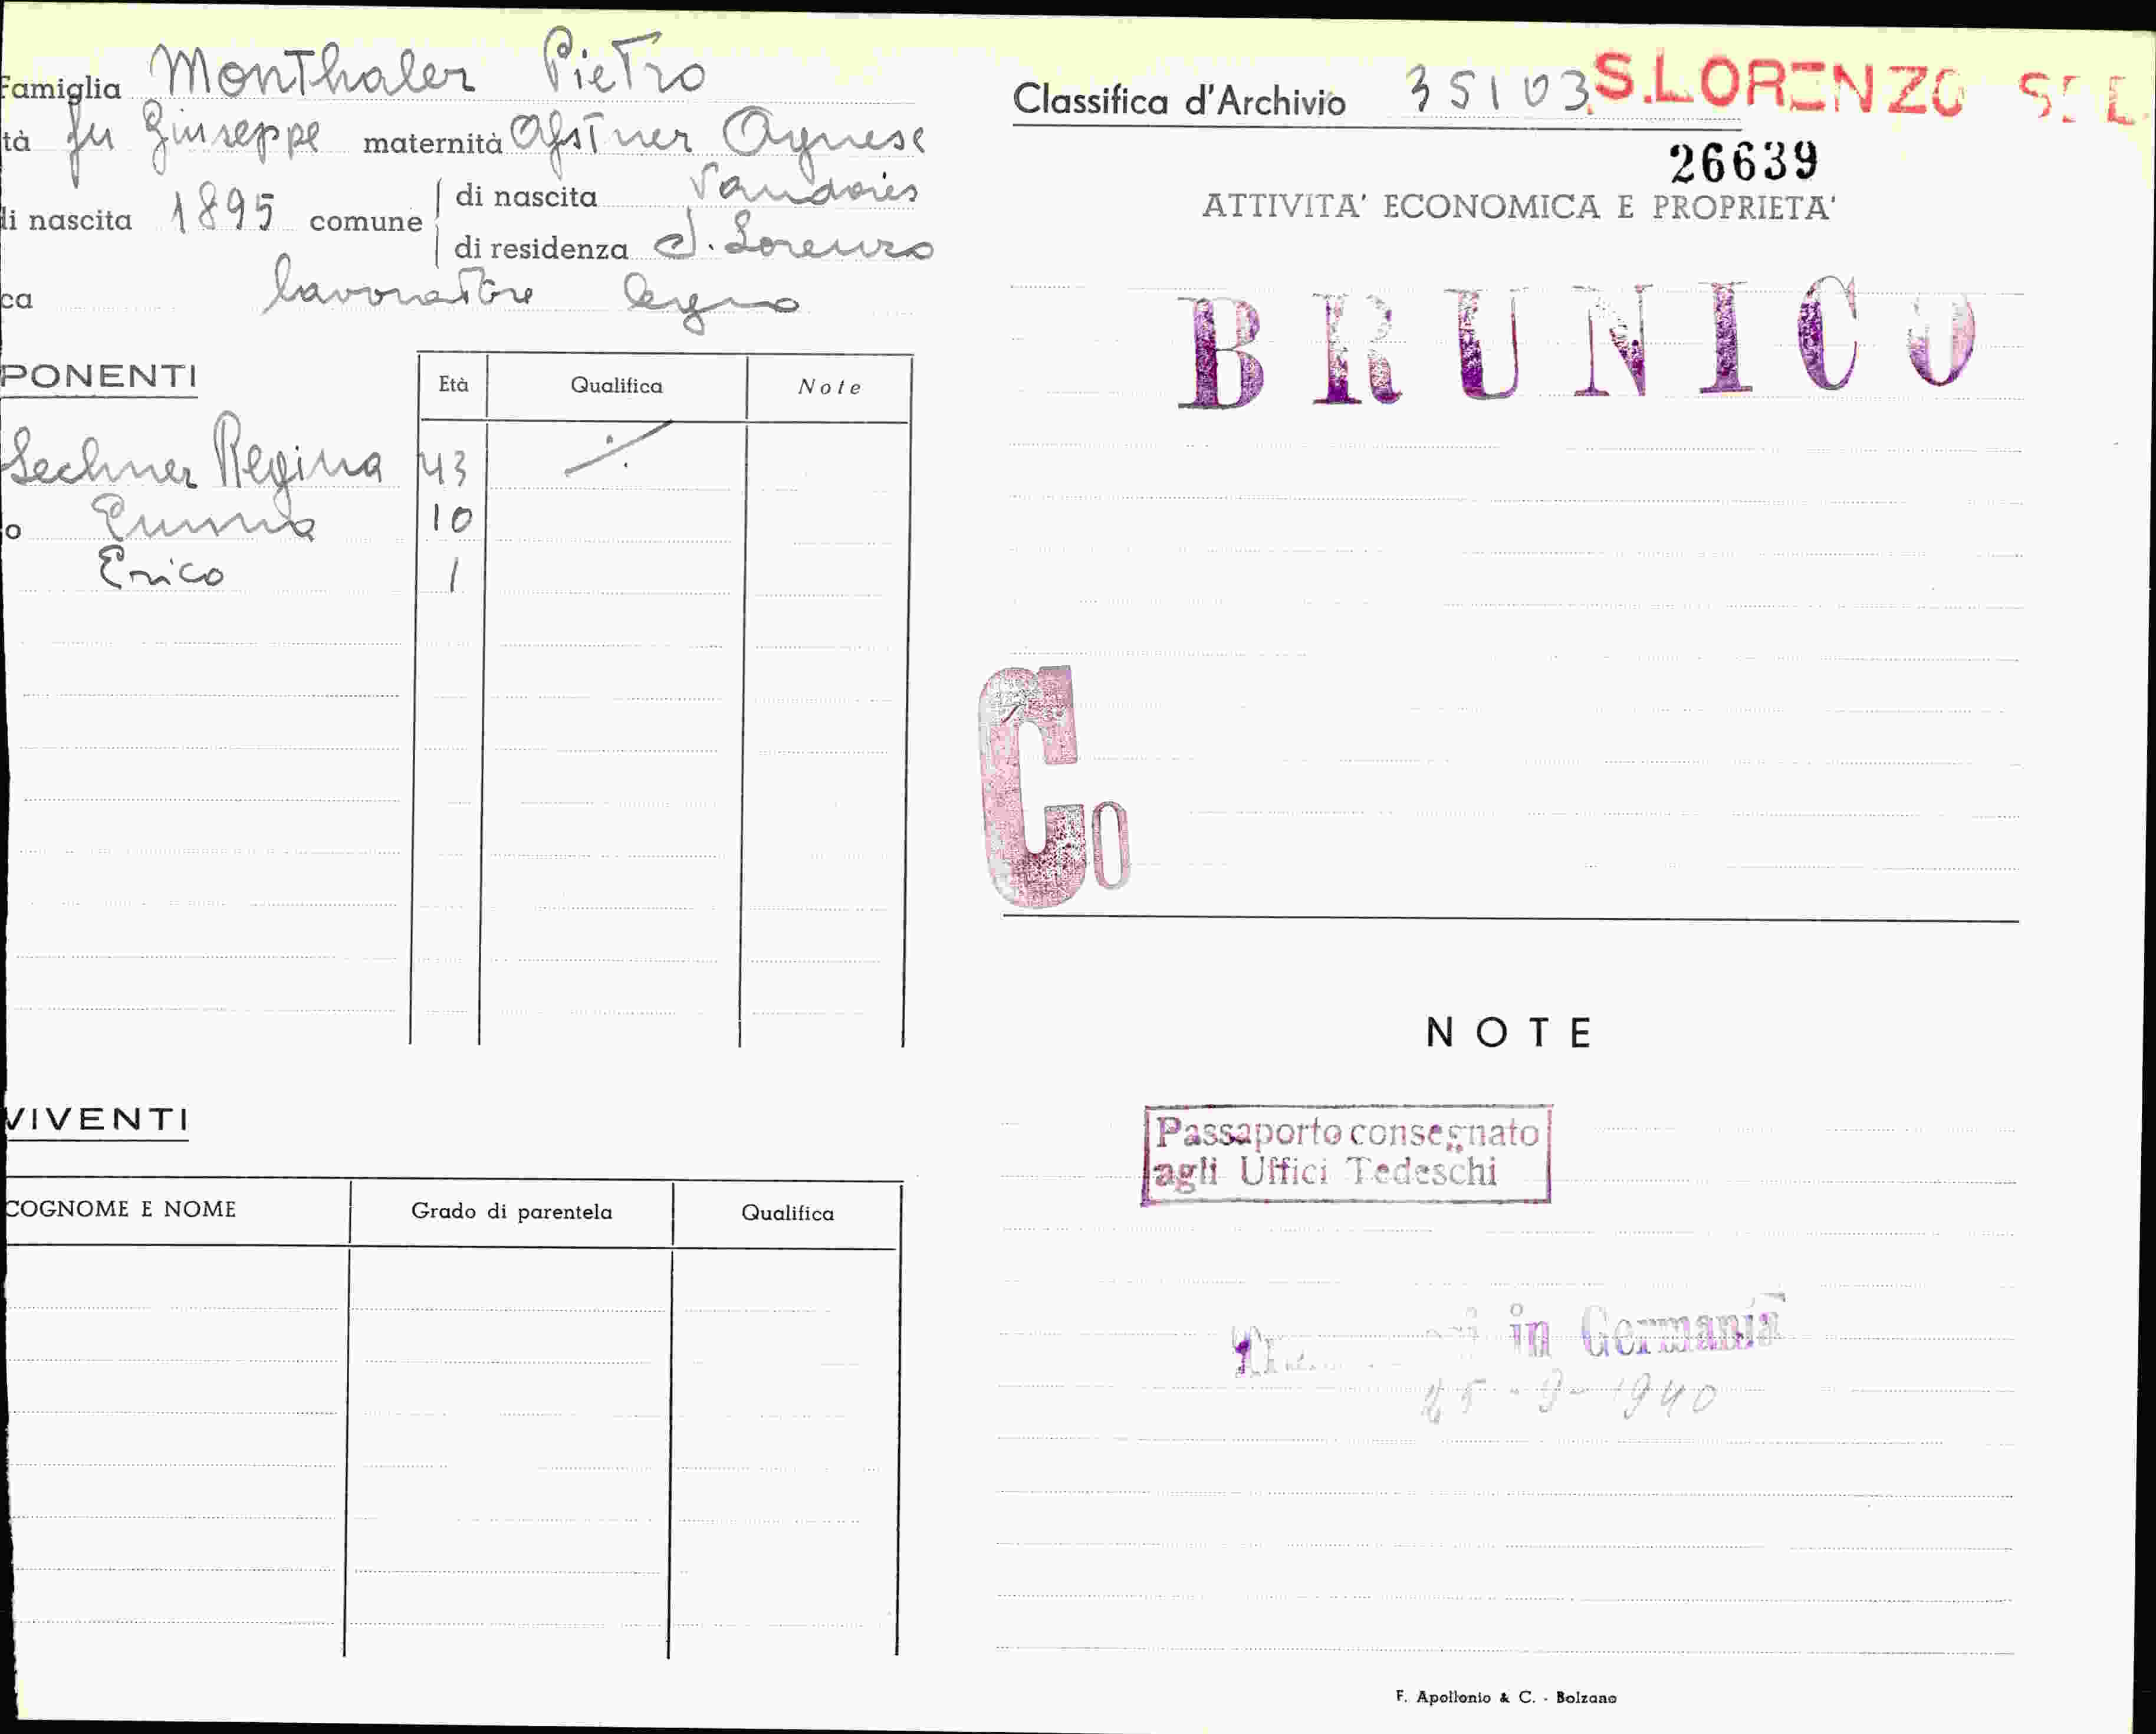 Famiglia Monthaler Pietro
tà fu Giuseppe maternità Ofstner Agnese
di nascita 1895 comune di nascita Vandoies
di residenza S. Lorenzo
ca lavoratore legno
PONENTI
Età Qualifica Note
Lechner Regina 43
o Emma 10
Erico 1
VIVENTI
COGNOME E NOME Grado di parentela Qualifica
Classifica d'Archivio 35103 S.LORENZO
26639
ATTIVITA' ECONOMICA E PROPRIETA'
BRUNICO
Co
NOTE
Passaporto consegnato
agli Uffici Tedeschi
in Germania
25-9-1940
F. Apollonio & C. - Bolzano